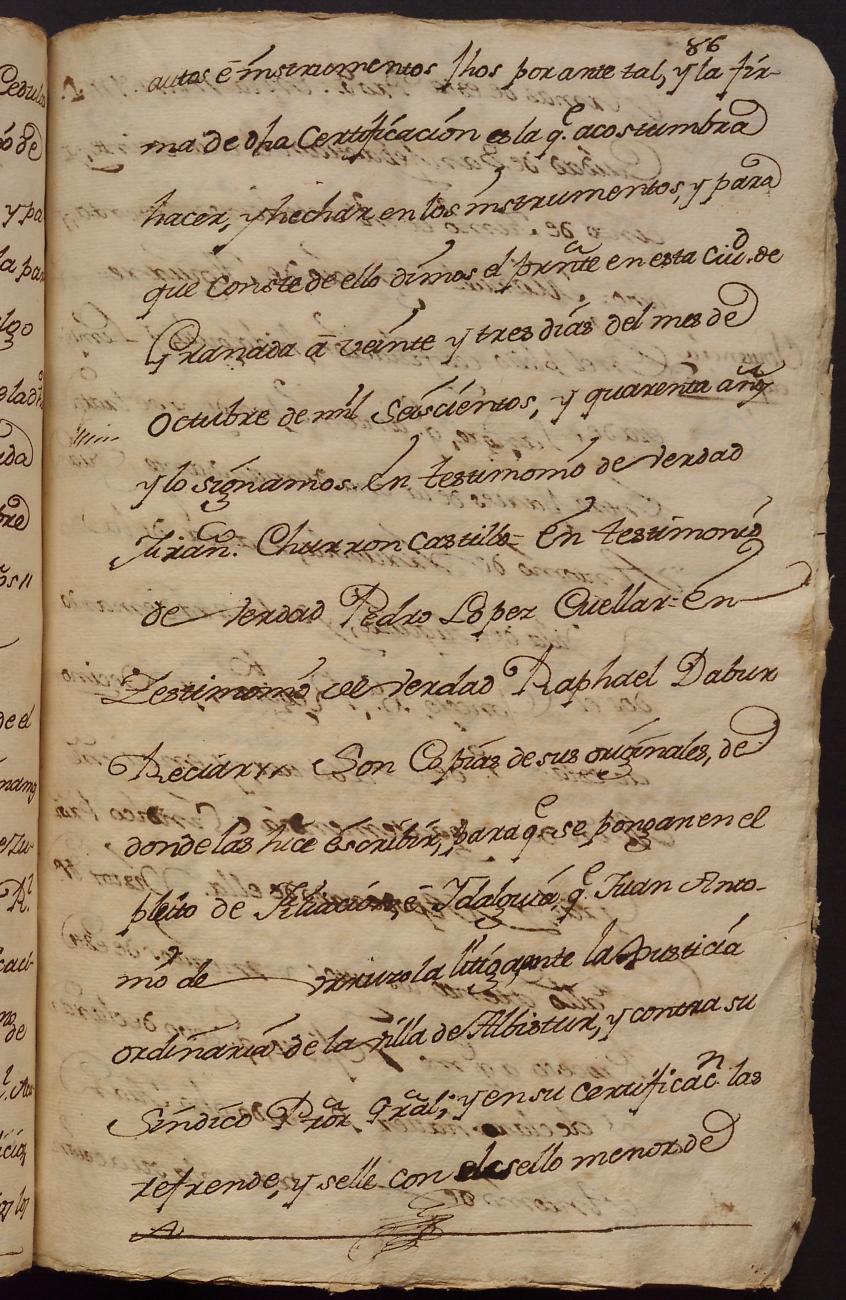 86
autos é instrumentos fhos por ante tal, y la fir-
ma de dha Certificación es la q.e acostumbra
hacer, y hechar en los instrumentos, y para
que Conste de ello dimos el prñte en esta Ciud. de
Granada à veinte y tres días del mes de
octubre de mil Seiscientos, y quarenta años
y lo signamos. En testimonio de verdad
Churron Castillo = En testimonio
de verdad Pedro Lopez Cuellar = En
Testimonio de verdad Raphael Dabur
Son Copias de sus originales, de
donde las hice escribir, para q.e se pongan en el
pleito de filiación, é Ydalguia, q.e Juan Anto-
nio de la litiga, ante la Justicia
ordinaria de la villa de Albistur, y contra su
Síndico Pror. gral; y en su certificac.n las
refrende, y selle con el sello menor de